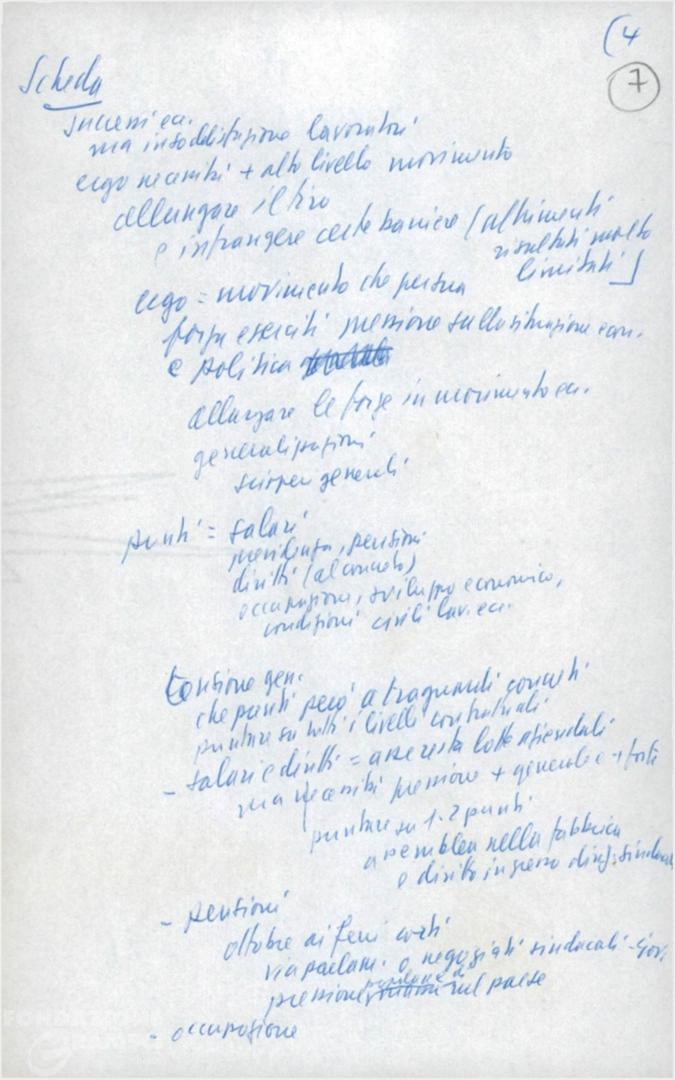 (4
7
Scheda
successi ec.
ma insoddisfazione lavoratori
ergo necessità + alto livello movimento
allungare il tiro
e infrangere certe barriere (altrimenti
risultati molto
limitati)
ergo = movimento che per sua
forza eserciti pressione sulla situazione econ.
e politica
allungare le forze in movimento ec.
generalizzazioni
scioperi generali
punti = salari
previdenza, pensioni
diritti (al concreto)
occupazione, sviluppo economico,
condizioni civili lav. ec.
Tensione gen.
che punti però a traguardi concreti
puntare su tutti i livelli contrattuali
- salari e diritti = asse resta lotte aziendali
ma necessità pressione + generale e + forte
puntare su 1-2 punti
assemblea nella fabbrica
e diritto ingresso dirig. sindacali
- pensioni
ottobre ai ferri corti
via parlam. o negoziati sindacali - gov.
pressione sul paese
- occupazione
FONDAZIONE